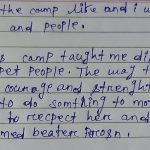 the comp like and i w
and people.
s camp taught me di
pet people. The way t
courage and strenght
to do somthing to mo
to respect her and
med beater person.